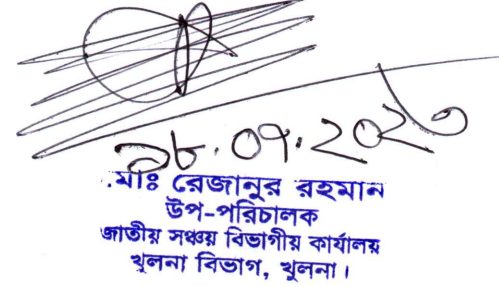 ১৮.০৭.২০২৩
মোঃ রেজানুর রহমান
উপ-পরিচালক
জাতীয় সঞ্চয় বিভাগীয় কার্যালয়
খুলনা বিভাগ, খুলনা।